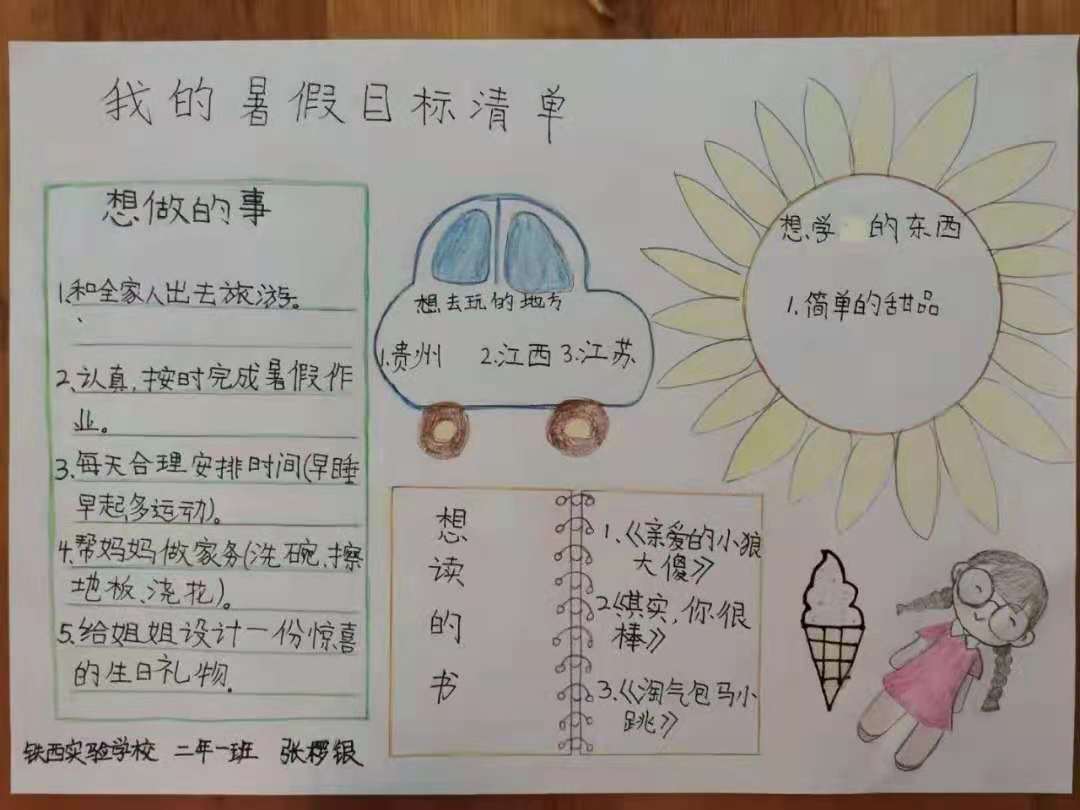 我的暑假目标清单
想做的事
1.和全家人出去旅游。
2.认真,按时完成暑假作
业。
3.每天合理安排时间(早睡
早起,多运动)。
4.帮妈妈做家务(洗碗、擦
地板、浇花)。
5.给姐姐设计一份惊喜
的生日礼物。
想去玩的地方
1.贵州 2.江西 3.江苏
想学 的东西
1.简单的甜品
想读的书
1.《亲爱的小狼
大傻》
2.《其实,你很
棒》
3.《淘气包马小
跳》
铁西实验学校 二年一班 张椤银